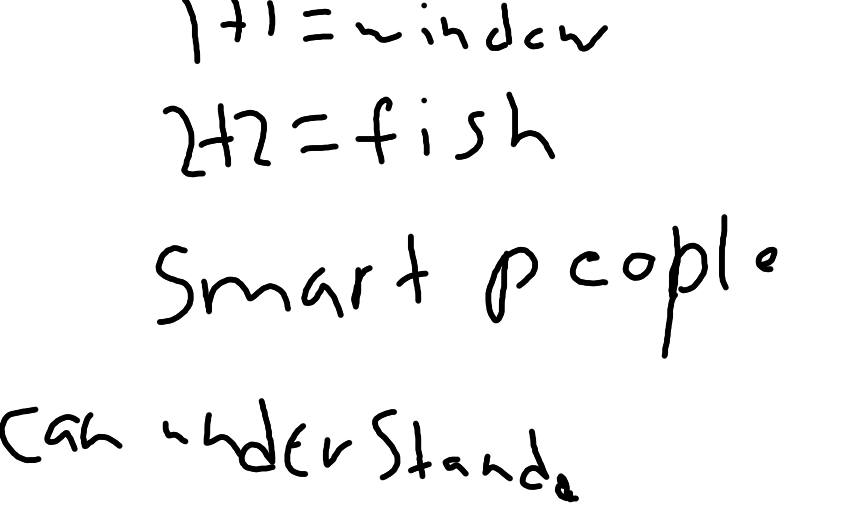 1+1=window
2+2=fish
Smart people
can understand.